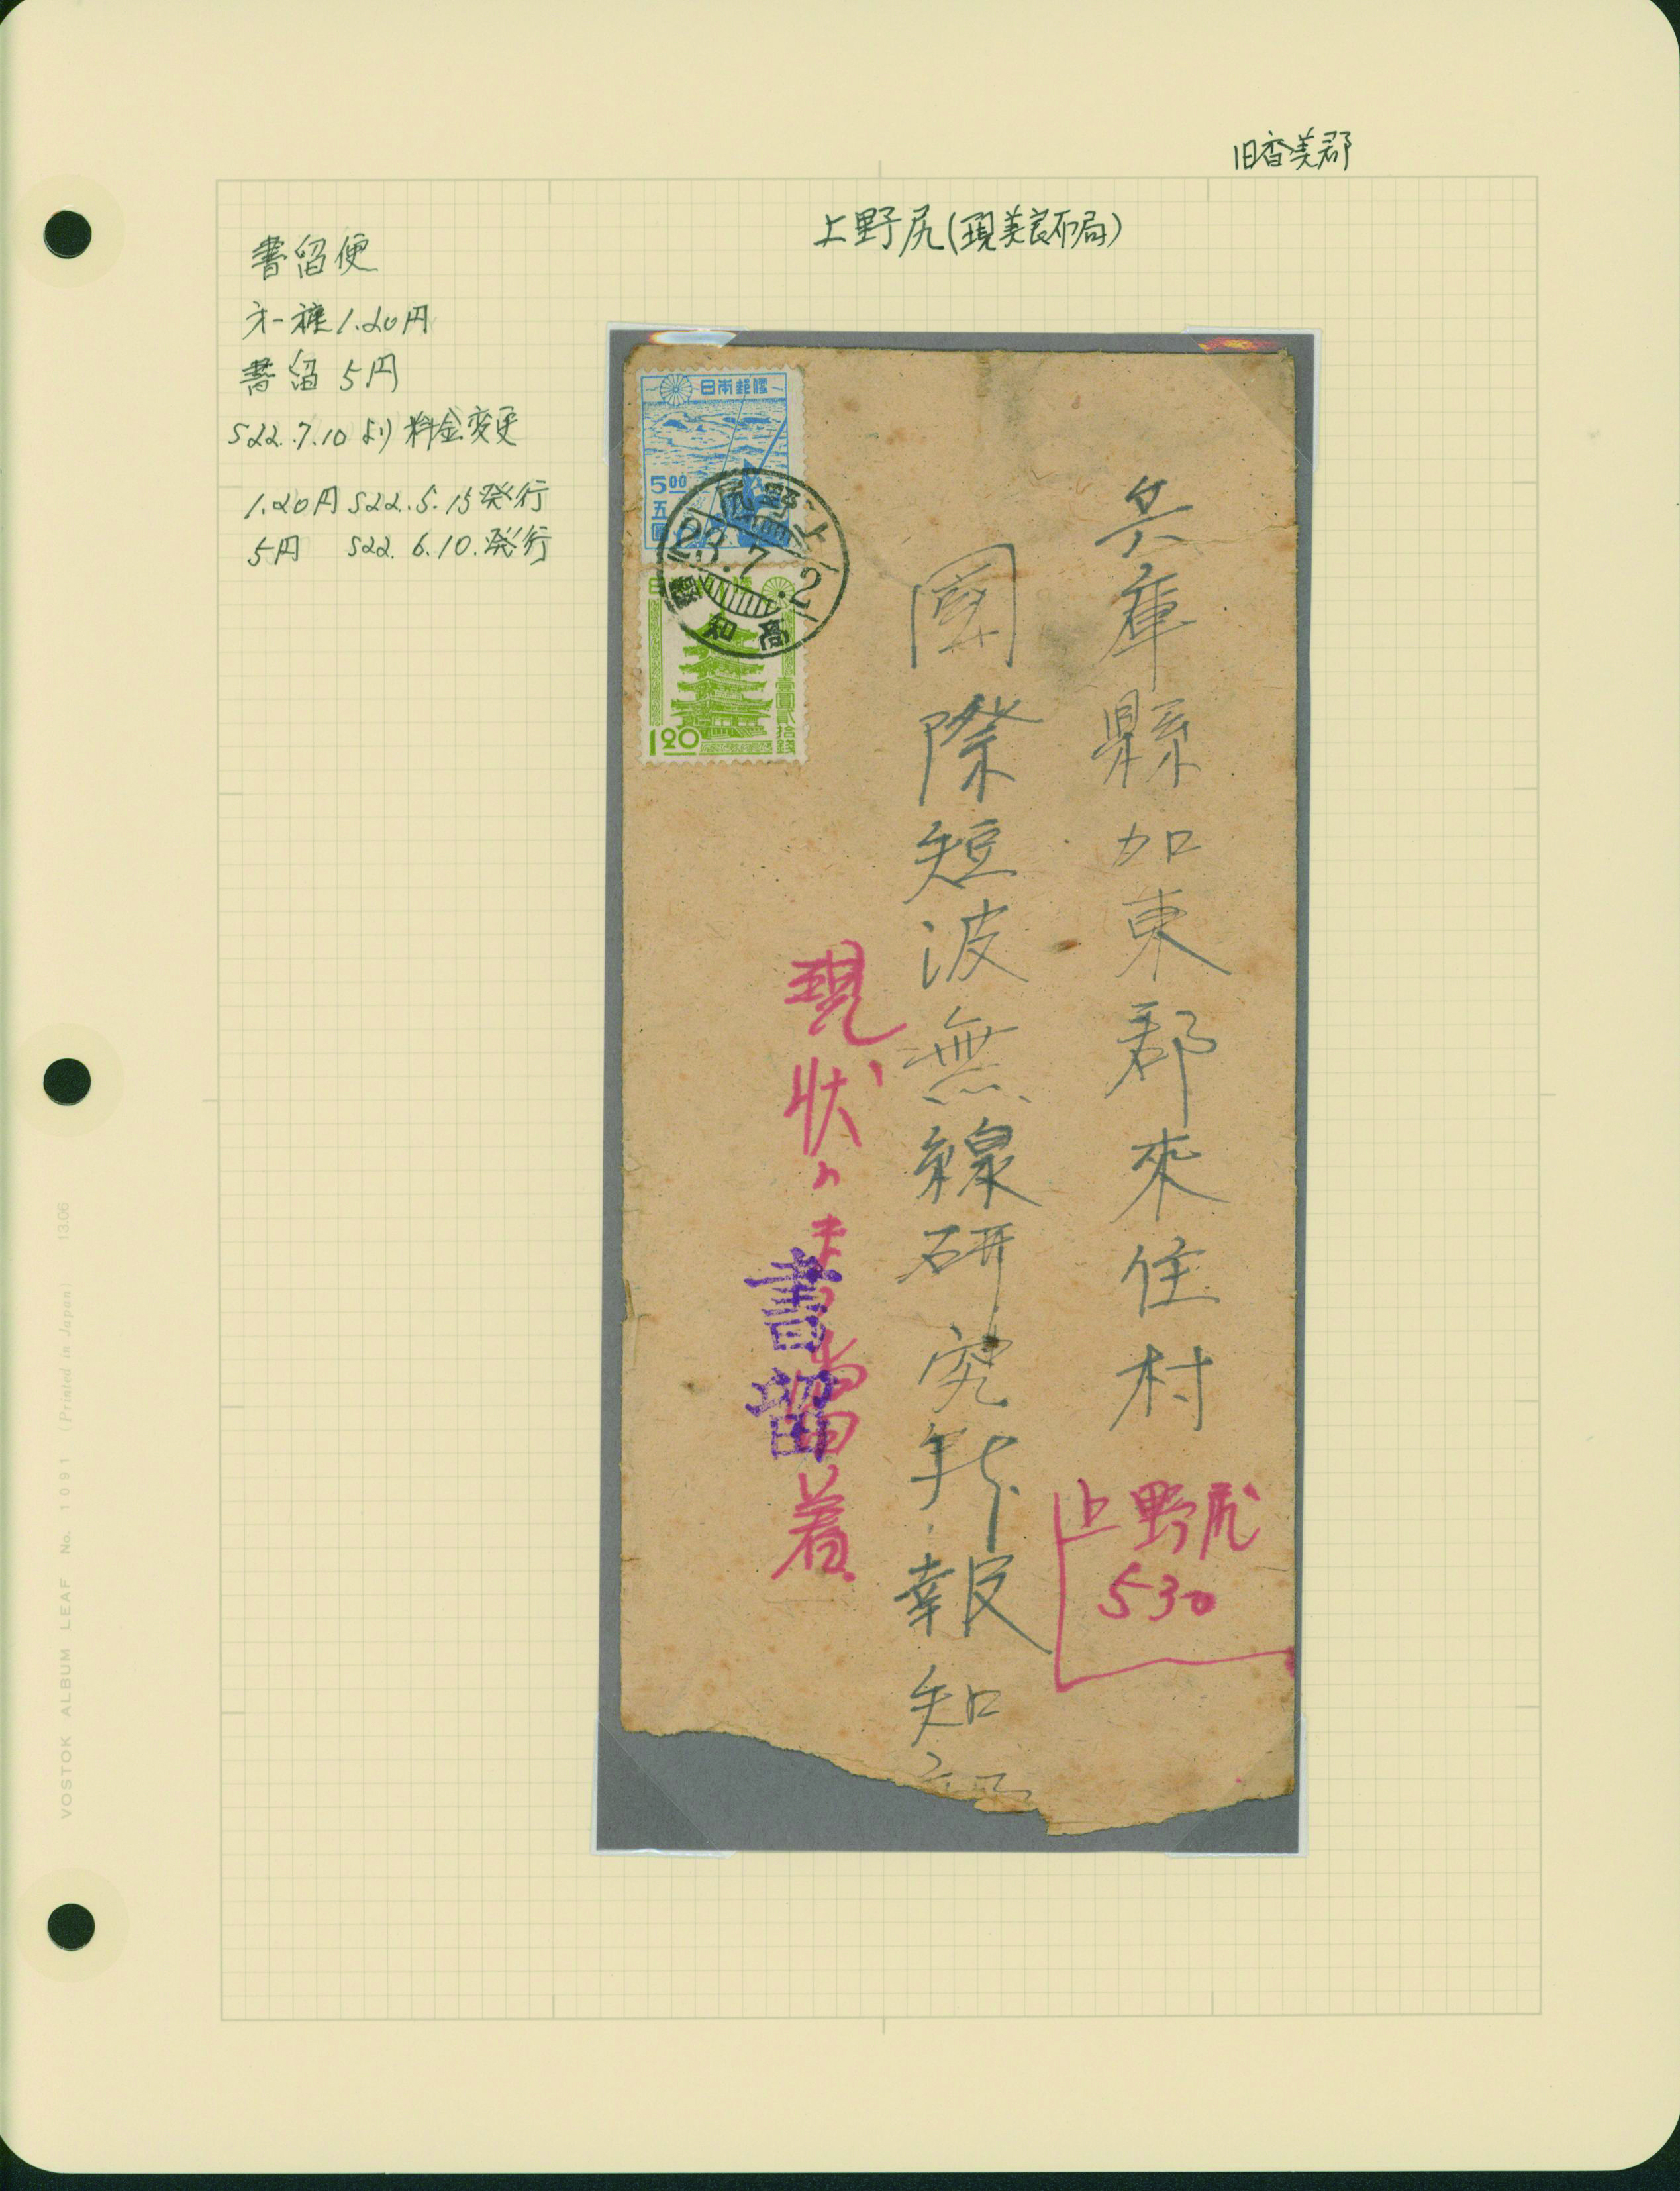 旧香美郡
上野尻(現美良布局)
書留便
才一種1.20円
書留 5円
S22.7.10より料金変更
1.20円 S22.5.15発行
5円 S22.6.10.発行
日本郵便
5.00
五圓
上野尻
23.7.2
高知縣
壹圓貳拾錢
1.20
兵庫縣加東郡來住村
國際短波無線研究
報知
現状のまま
着
書留
上野尻
530
VOSTOK ALBUM LEAF No. 1091 (Printed in Japan) 13.06